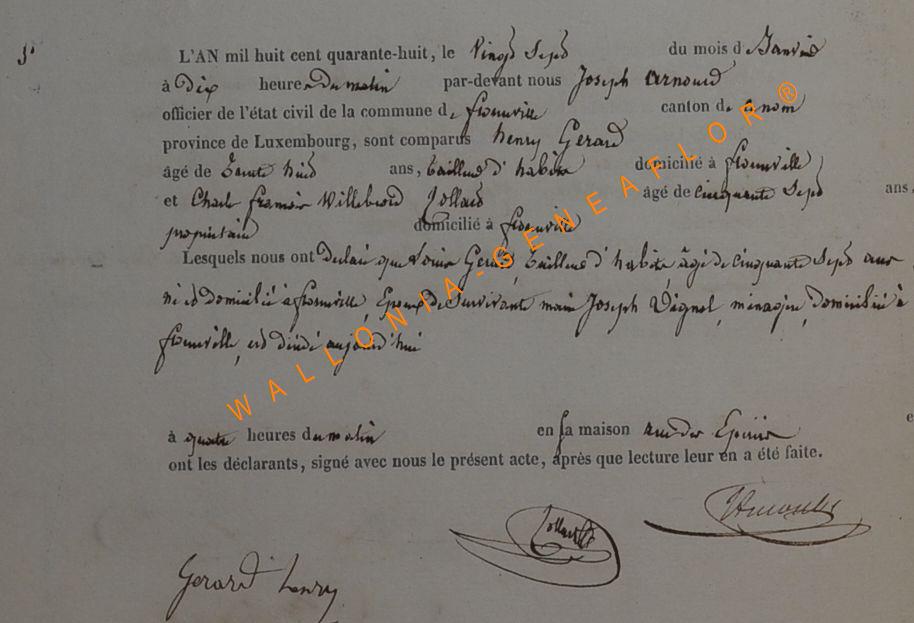 5.
L'AN mil huit cent quarante-huit, le Vingt Sept du mois d. Janvier
à Dix heures Du matin par-devant nous Joseph Arnould
officier de l'état civil de la commune d. fronville canton de
province de Luxembourg, sont comparus henry Gerard
âgé de trente huit ans, tailleur d'habits domicilié à fronville
et Charles françois Willebrord Jollard âgé de cinquante Sept ans,
propriétaire domicilié à fronville
Lesquels nous ont Déclaré que Louis Gerard, tailleur d'habits, âgé de cinquante Sept ans
né et domicilié à fronville, Epoux de Survivante marie Joseph Vignol, ménagère, domiciliée à
fronville, est décédé aujourd'hui
à quatre heures du matin en sa maison rue des et
ont les déclarants, signé avec nous le présent acte, après que lecture leur en a été faite.
Gerard henry
WALLONIA-GENEAFLOR®